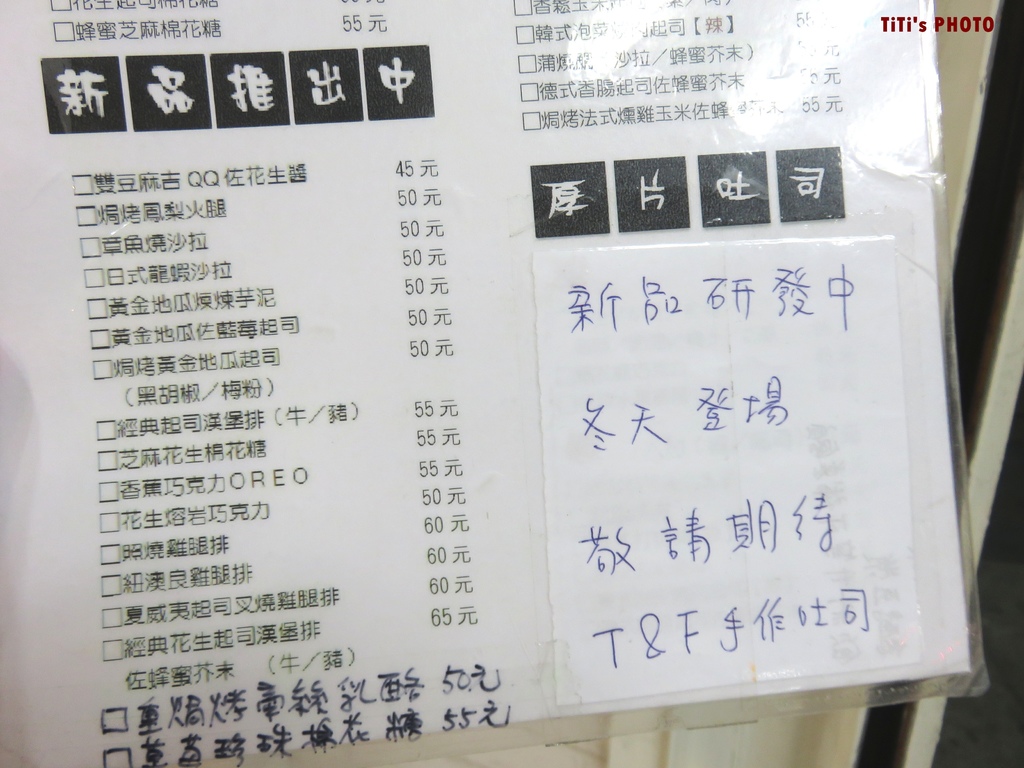 TiTi's PHOTO
花生起司棉花糖
□蜂蜜芝麻棉花糖 55元
新品推出中
□雙豆麻吉QQ佐花生醬 45元
□焗烤鳳梨火腿 50元
□章魚燒沙拉 50元
□日式龍蝦沙拉 50元
□黃金地瓜煉煉芋泥 50元
□黃金地瓜佐藍莓起司 50元
□焗烤黃金地瓜起司 50元
（黑胡椒／梅粉）
□經典起司漢堡排（牛／豬） 55元
□芝麻花生棉花糖 55元
□香蕉巧克力OREO 55元
□花生熔岩巧克力 50元
□照燒雞腿排 60元
□紐澳良雞腿排 60元
□夏威夷起司叉燒雞腿排 60元
□經典花生起司漢堡排 65元
佐蜂蜜芥末 （牛／豬）
□重焗烤雙絲乳酪 50元
□草莓珍珠棉花糖 55元
□韓式泡菜 起司【辣】 55
□蒲燒鰻 沙拉／蜂蜜芥末）
□德式香腸起司佐蜂蜜芥末 5元
□焗烤法式燻雞玉米佐蜂 芥末 55元
厚片吐司
新品研發中
冬天登場
敬請期待
T&F手作吐司